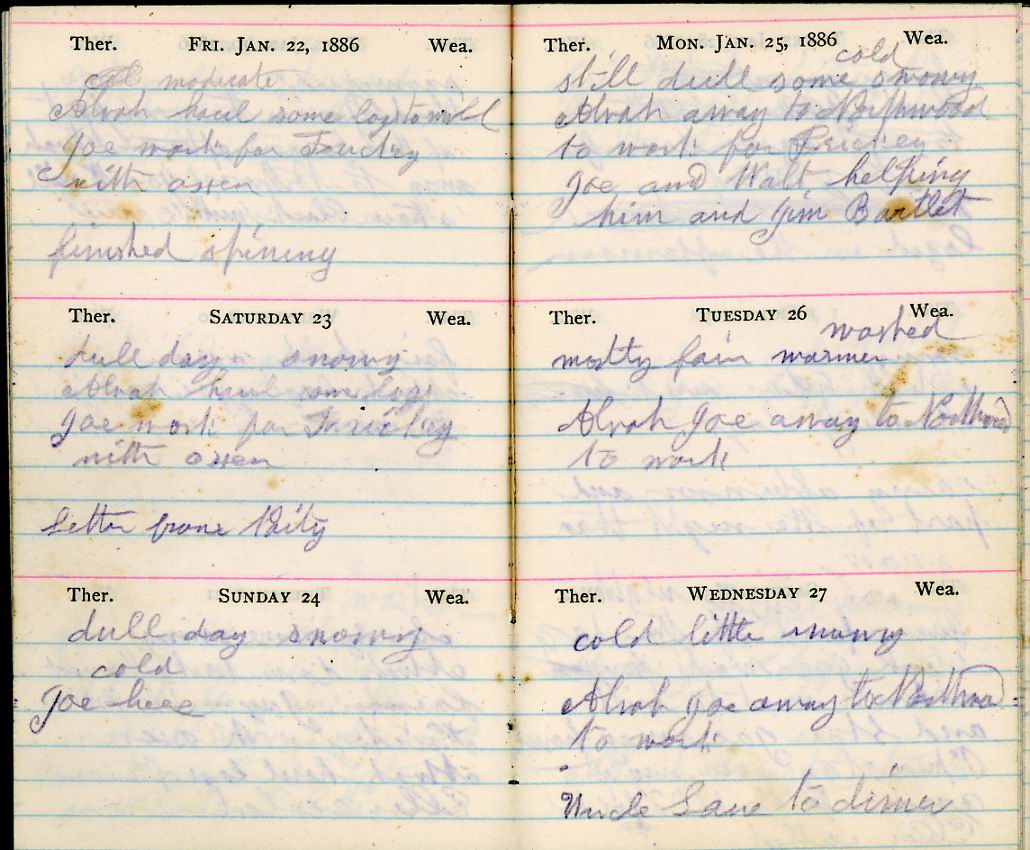 Ther. FRI. JAN. 22, 1886 Wea.
moderate
Alvah haul some logs to mill
Joe work for
with oxen
finished spining
Ther. SATURDAY 23 Wea.
dull day snowy
Alvah haul some logs
Joe work for
with oxen
letter from
Ther. SUNDAY 24 Wea.
dull day snowy
cold
Joe here
Ther. MON. JAN. 25, 1886 Wea.
cold
still dull some snowy
Alvah away to Northwood
to work for
Joe and Walt helping
him and Jim Bartlet
Ther. TUESDAY 26 Wea.
washed
mostly fair warmer
Alvah Joe away to Northwood
to work
Ther. WEDNESDAY 27 Wea.
cold little snowy
Alvah Joe away to
to work
Uncle to dinner